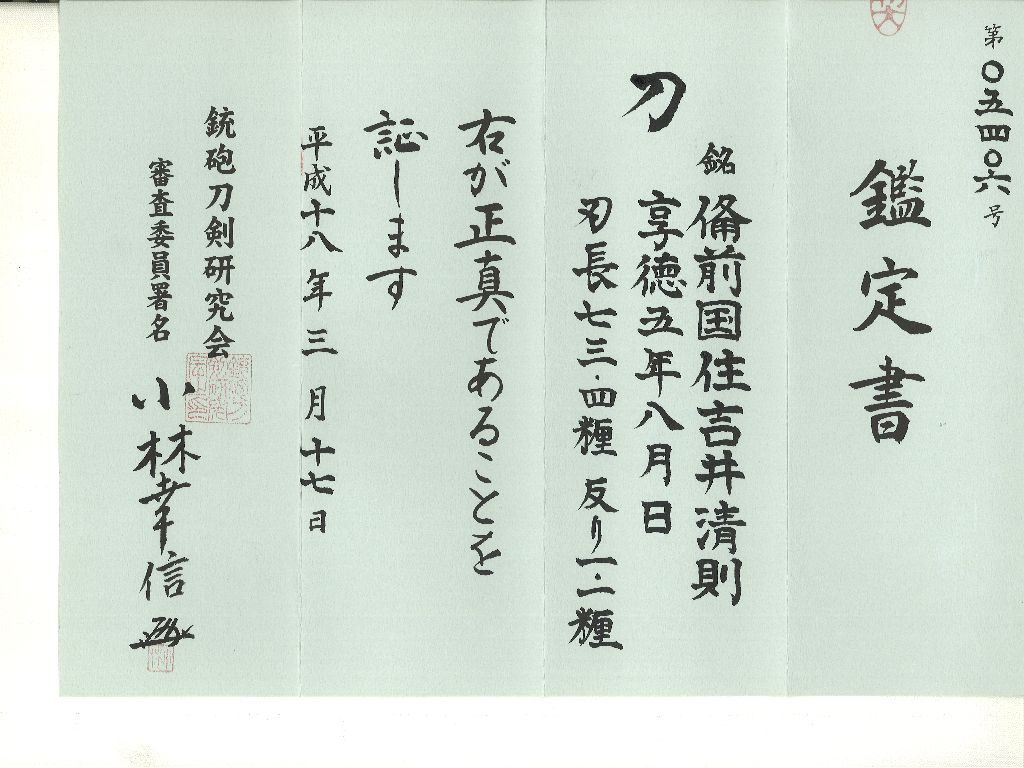 第〇五四〇六号
鑑定書
銘 備前国住吉井清則
刀
享徳五年八月日
刃長七三.四糎 反り一.二糎
右が正真であることを
証します
平成十八年三月十七日
銃砲刀剣研究会
審査委員署名 小林幸信